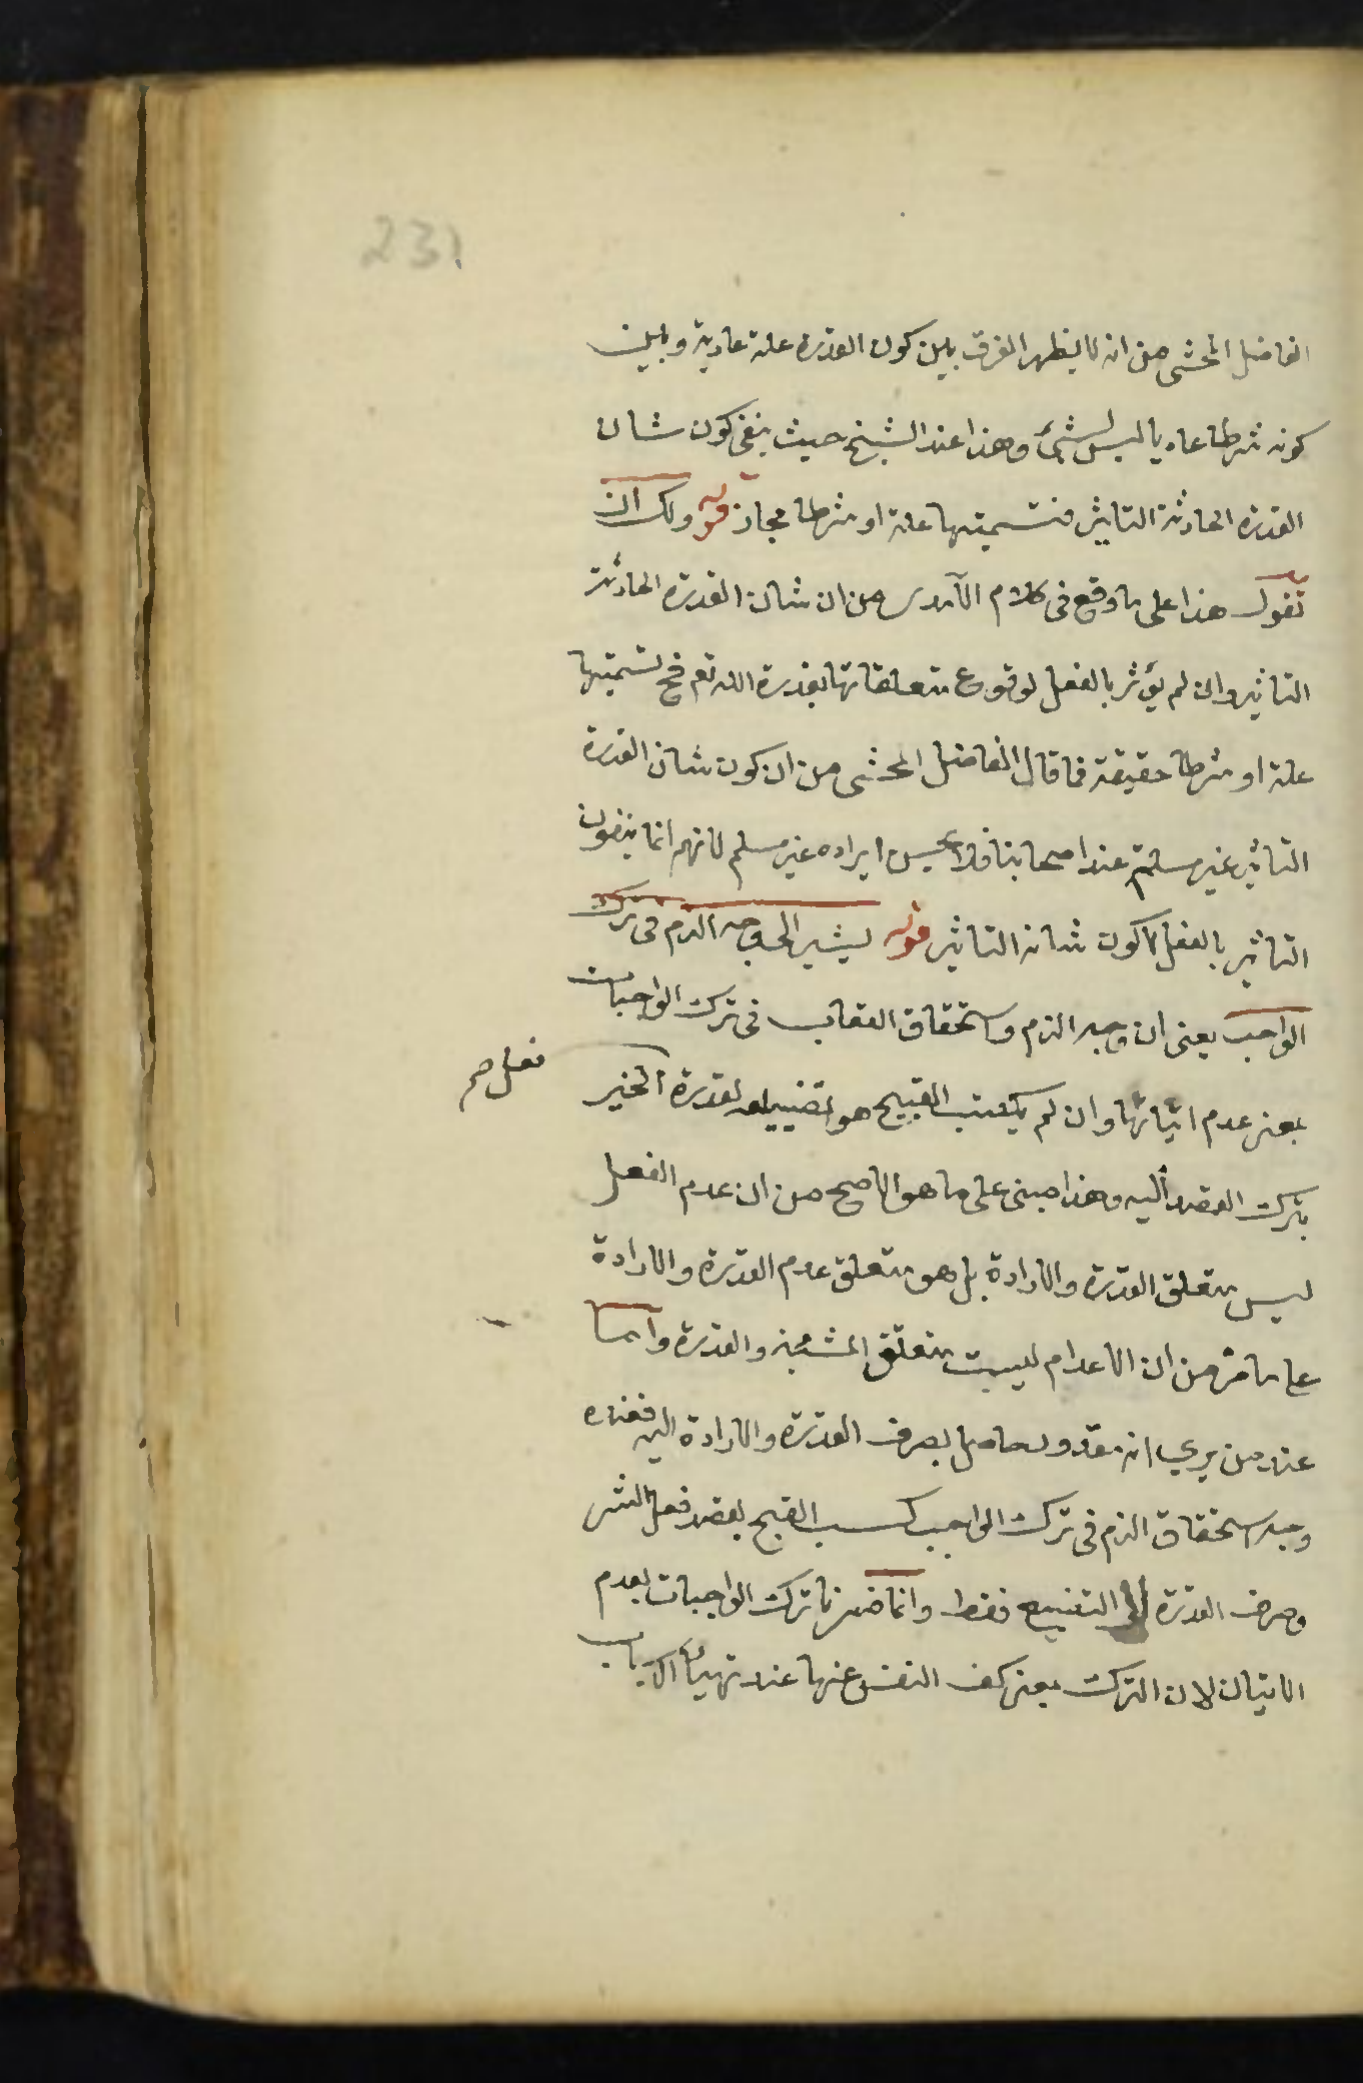 231
الفاضل المحشى من انه لا يظهر الفرق بين كون القدرة علة عادية وبين
كونه شرطا عاديا ليس بشئ وهذا عند الشيخ حيث ينفى كون شان
القدرة الحادثة التاثير فتسميتها علة او شرطا مجاز قوله ولك ان
تقول هذا على ما وقع فى كلام الآمدى من ان شان القدرة الحادثة
التاثير وان لم يؤثر بالفعل لوقوع متعلقاتها بقدرة الله تع فح تسميتها
علة او شرطا حقيقة فما قال الفاضل المحشى من ان كون شان القدرة
التاثير غير مسلم عند اصحابنا فلا يحسن ايراده غير مسلم لانهم انما ينفون
التاثير بالفعل لا كون شانه التاثير قوله يشير الى وجه الذم فى ترك
الواجب يعنى ان وجه الذم واستحقاق العقاب فى ترك الواجبات
بمعنى عدم اتيانها وان لم يكتسب القبيح هو تضييعه لقدرة الخير
فعل صح
بترك القصد اليه وهذا مبنى على ما هو الاصح من ان عدم الفعل
ليس متعلق القدرة والارادة بل هو متعلق عدم القدرة والارادة
على ما مر من ان الاعدام ليست متعلق المشئية والقدرة واما
عند من يرى انه مقدور حاصل بصرف القدرة والارادة اليه فعنده
وجه استحقاق الذم فى ترك الواجب كسب القبح بقصد فعل الشر
وصرف القدرة التضييع فقط وانما فسرنا ترك الواجبات بعدم
الاتيان لان الترك بمعنى كف النفس عنها عند تهيأ الاسباب